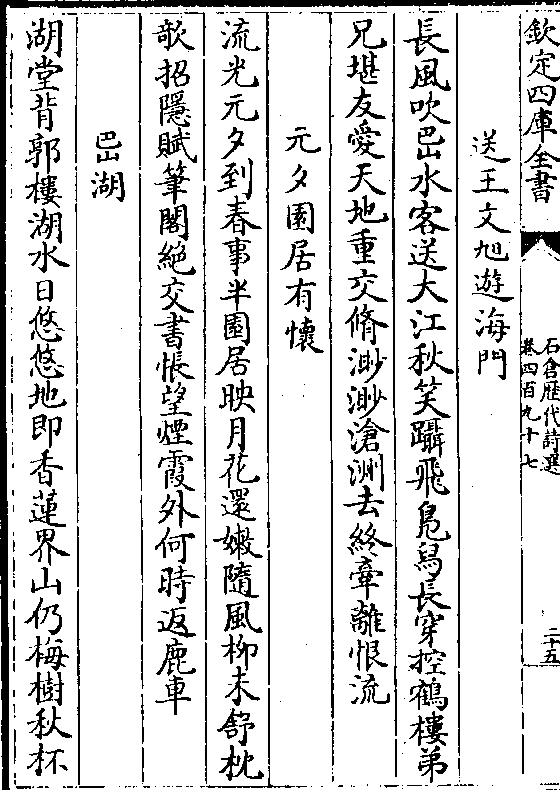 欽定四庫全書
石倉歴代詩選
卷四百九十七
二十五
送王文旭遊海門
長風吹巴水客送大江秋笑躡飛鳧舄長穿控鶴樓弟
兄堪友愛天地重交脩渺渺滄洲去終牽離恨流
元夕園居有懷
流光元夕到春事半園居映月花還嫩隨風柳未舒枕
歌招隱賦筆閣絶交書悵望煙霞外何時返鹿車
巴湖
湖堂背郭樓湖水日悠悠地即香蓮界山仍梅樹秋杯